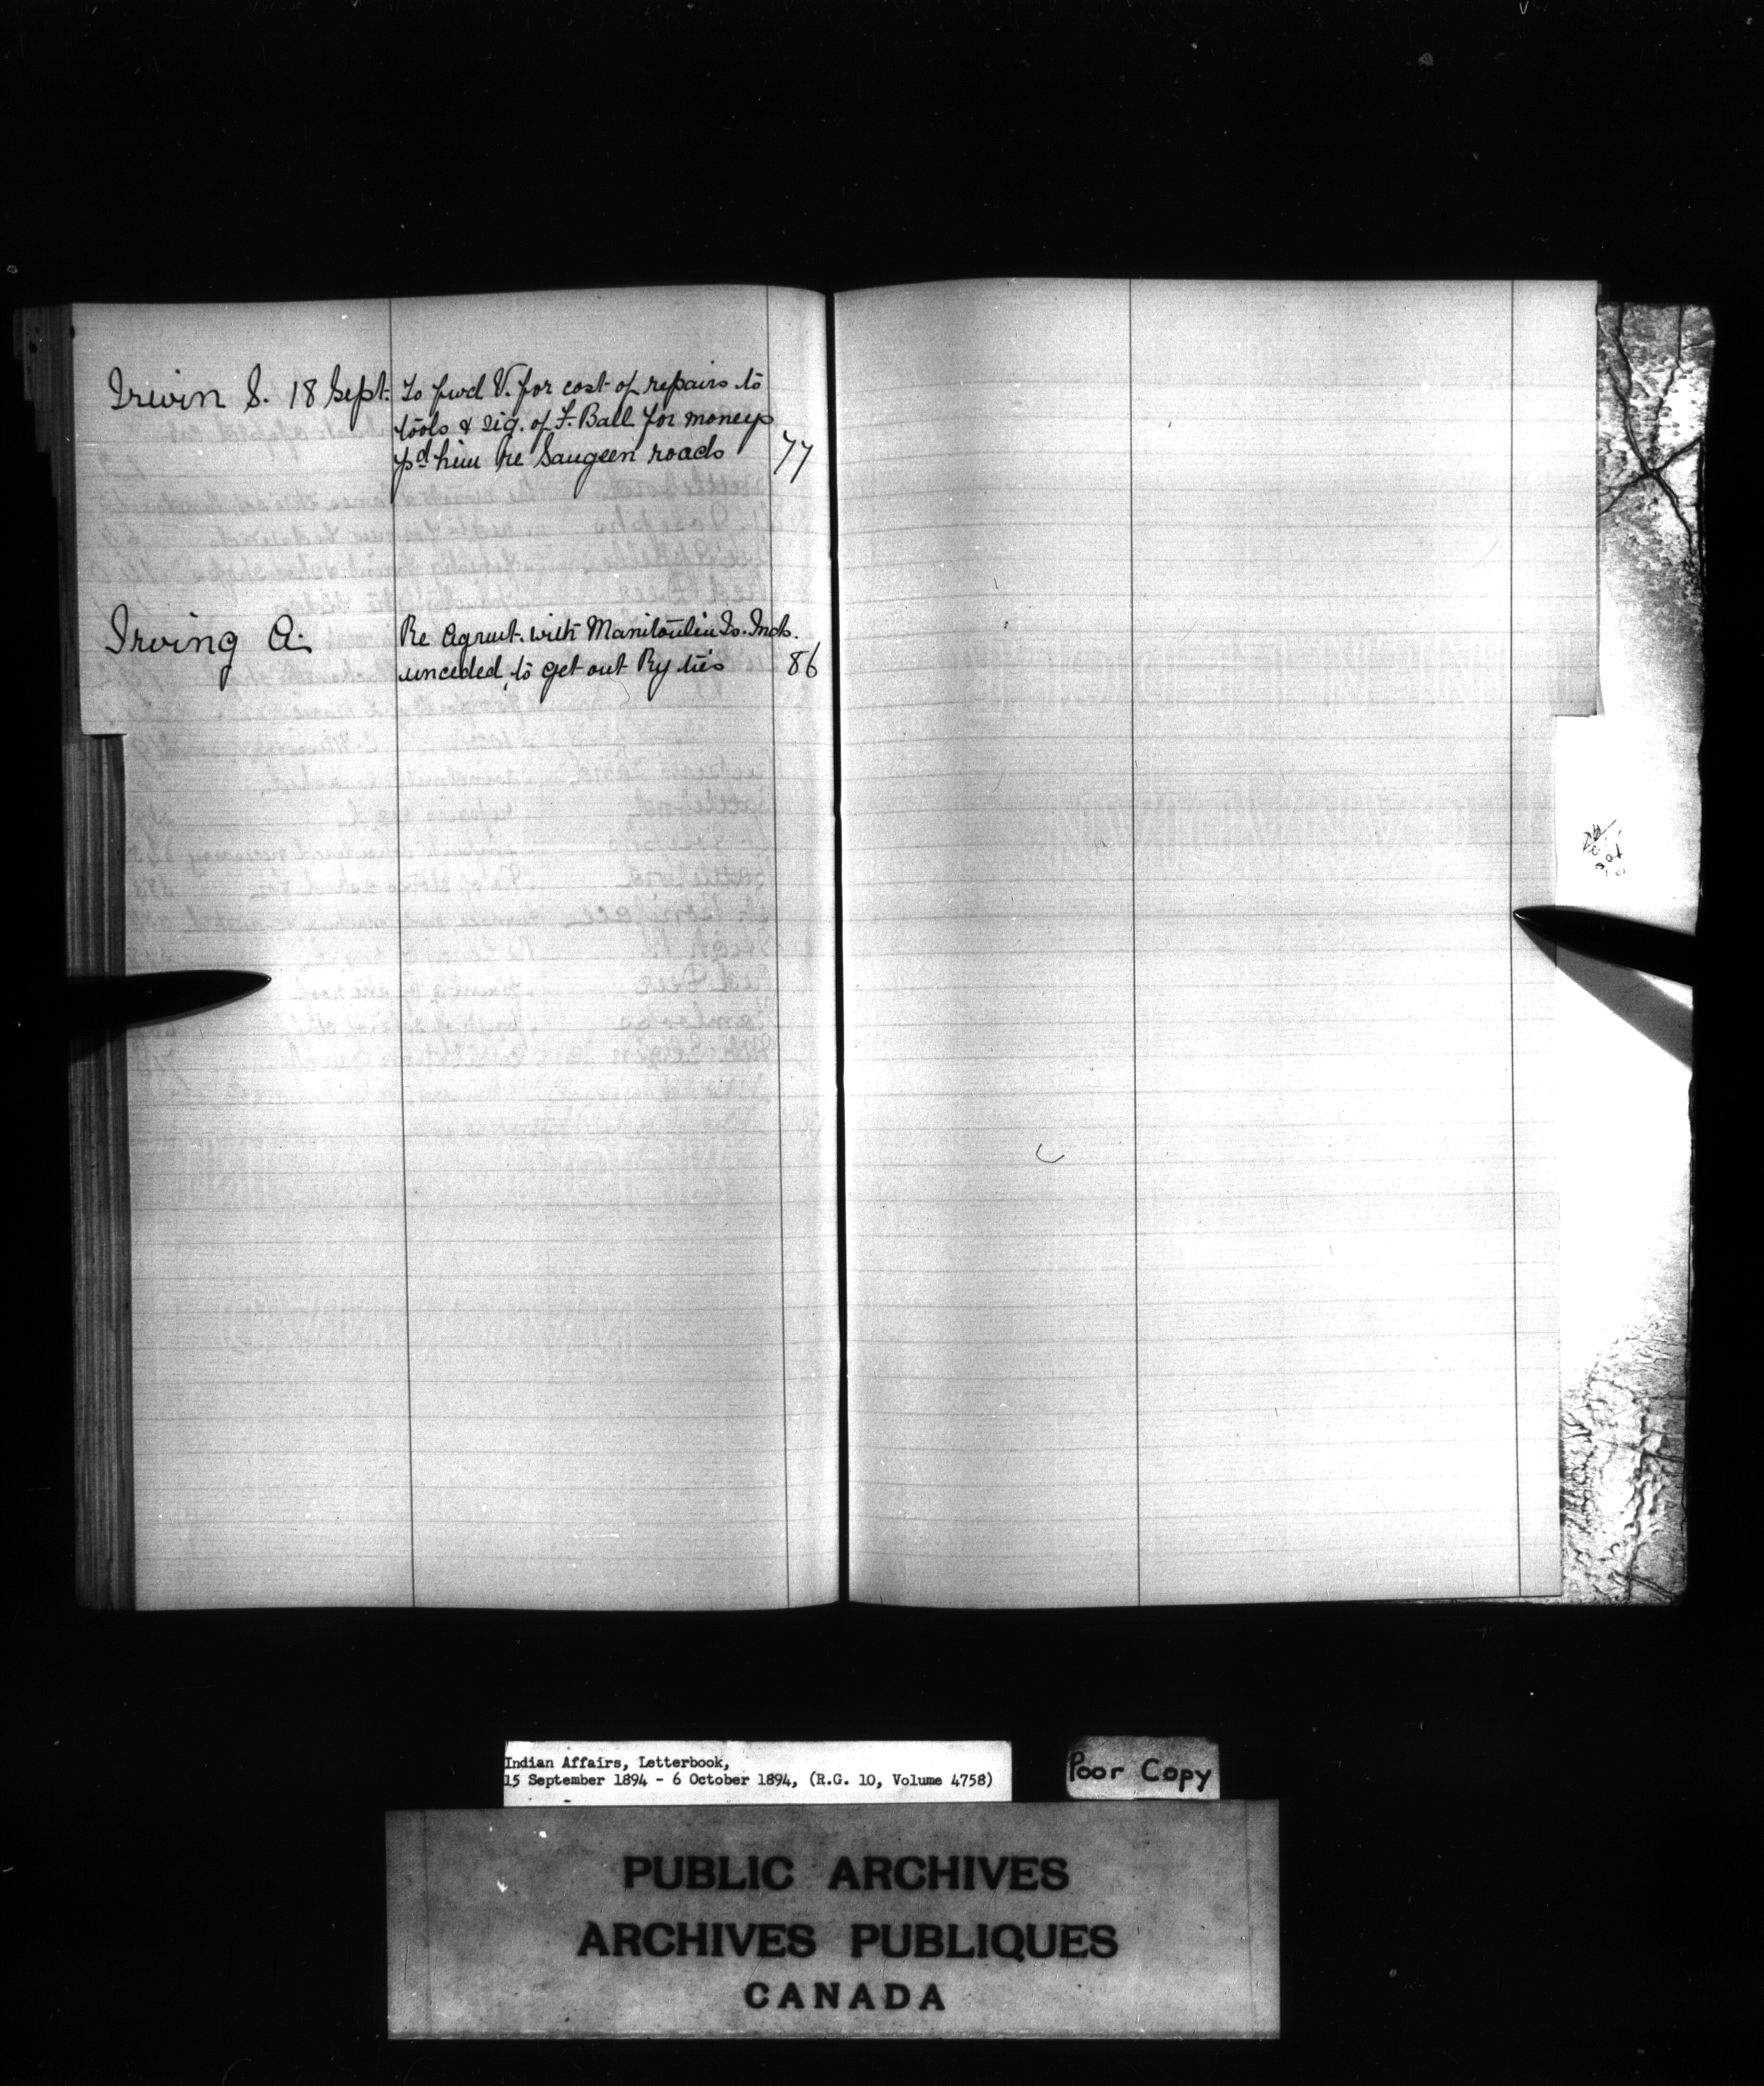 Irwin S. 18 Sept. To fwd V. for cost of repairs to
tools & sig. of F. Ball for moneys
pd him re Saugeen roads 77
Irving A. Re Agrmt. with Manitoulin Is. Inds.
unceded, to get out Ry ties 86
Indian Affairs, Letterbook,
15 September 1894 - 6 October 1894, (R.G. 10, Volume 4758)
Poor Copy
PUBLIC ARCHIVES
ARCHIVES PUBLIQUES
CANADA